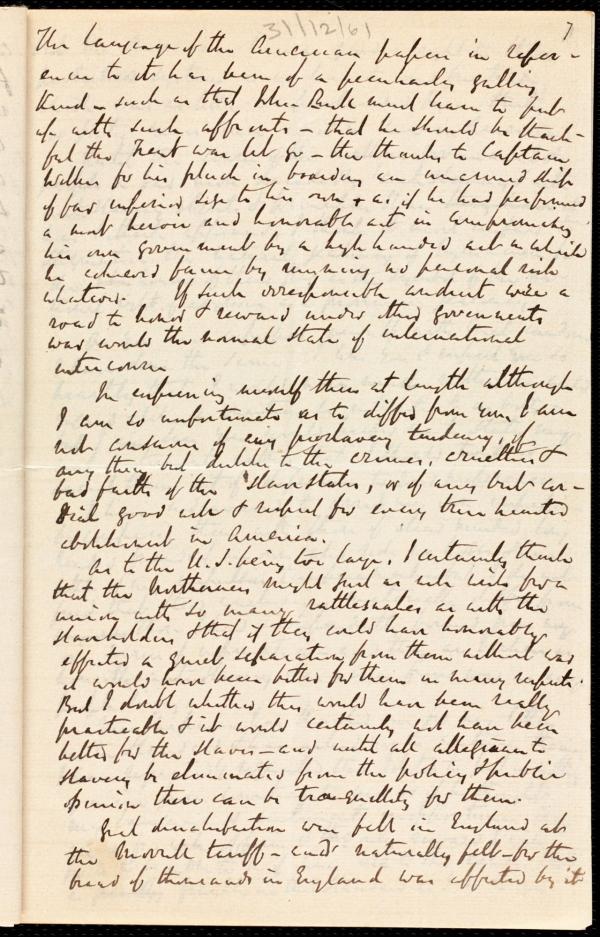 31/12/61
7
The language of the American papers in refer-
ence to it has been of a peculiarly galling
kind - such as that John Bull must learn to put
up with such affronts - that he should be thank-
ful the Trent was let go - the thanks to Captain
Wilkes for his pluck in boarding an unarmed ship
of far inferior size to his own & as if he had performed
a most heroic and honorable act in compromising
his own government by a high handed act in which
he achieved fame by running no personal risk
whatever. If such irresponsible conduct were a
road to honor & reward under other governments
war would the normal state of international
intercourse
In expressing myself thus at length although
I am so unfortunate as to differ from you, I am
not conscious of any proslavery tendency, of
any thing but dislike to the crimes, cruelties &
bad faith of the Slave States, or of any but cor-
dial good will & respect for every true hearted
abolitionist in America.
As to the U.S. being too large, I certainly think
that the Northerners might just as well wish for a
union with so many rattlesnakes as with the
slaveholders & that if they could have honorably
effected a quiet separation from them without war
it would have been better for them in many respects.
But I doubt whether this would have been really
practicable & it would certainly not have been
better for the slaves - and until all allegiance to
slavery be eliminated from the policy & public
opinion there can be no tranquillity for them.
Great dissatisfaction was felt in England at
the Morrill tariff - and naturally felt - for the
bread of thousands in England was affected by it